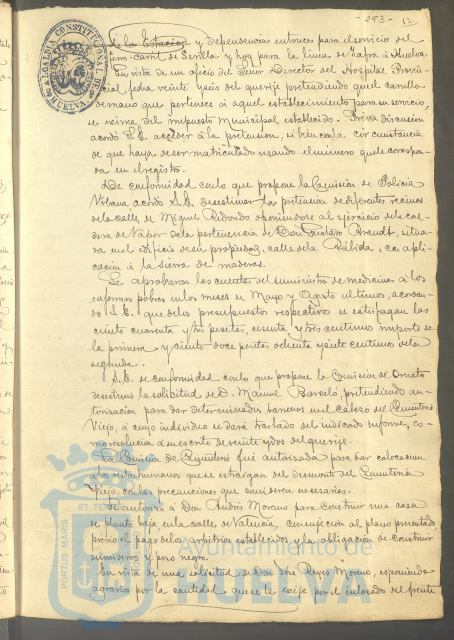 -293- 12
de la Estacion y dependencias entonces para el servicio del
ferro-carril de Sevilla y hoy para la linea de Zafra á Huelva.
En vista de un oficio del Señor Director del Hospital Provin
cial fecha veinte y seis del que rije pretendiendo que el carrillo
de mano que pertenece á aquel establecimiento para su servicio,
se exima del impuesto Municipal establecido. Previa discusion
acordó S.E. acceder á la pretension, si bien con la circunstancia
de que haya de ser matriculado usando el número que le correspon
da en el registro.
De conformidad con lo que propone la Comision de Policia
Urbana acordó S.E. desestimar la pretension de diferentes vecinos
de la calle de Miguel Redondo oponiendose al ejercicio de la cal
dera de vapor de la pertenencia de Don Gustavo Brandt, situa
da en el edificio de su propiedad, calle de la Rábida, con apli
cacion á la sierra de maderas.
Se aprobaron las cuentas del suministro de medicinas á los
enfermos pobres en los meses de Mayo y Agosto ultimos, acordan
do S.E. que de los presupuestos respectivos se satisfagan las
ciento cuarenta y tres pesetas, sesenta y tres centimos importe de
la primera y ciento doce pesetas ochenta y siete centimos de la
segunda.
S.E. de conformidad con lo que propone la Comision de Ornato
desestimó la solicitud de D. Manuel Barceló, pretendiendo au
torizacion para dar determinados barrenos en el cabezo del Cementerio
Viejo, á cuyo individuo se dará traslado del indicado informe, co
mo resolucion á su escrito de veinte y dos del que rije.
La Comision de Cementerio fué autorizada para dar colocacion
á los restos humanos que se extraigan del desmonte del Cementerio
Viejo, con las precauciones que considere necesarias.
Se autorizó á Don Andrés Moreno para construir una casa
de planta baja en la calle de Valencia, con sujecion al plano presentado,
previo el pago de los arbitrios establecidos y la obligacion de construir
sumideros y pozo negro.
En vista de una solicitud de Don José Reyes Moreno, exponiendo
agravio por la cantidad que se le exije por el enlosado del frente
ALCALDIA CONSTITUCIONAL DE HUELVA
PORTUS MARIS ET TERRAE
Ayuntamiento de
HUELVA